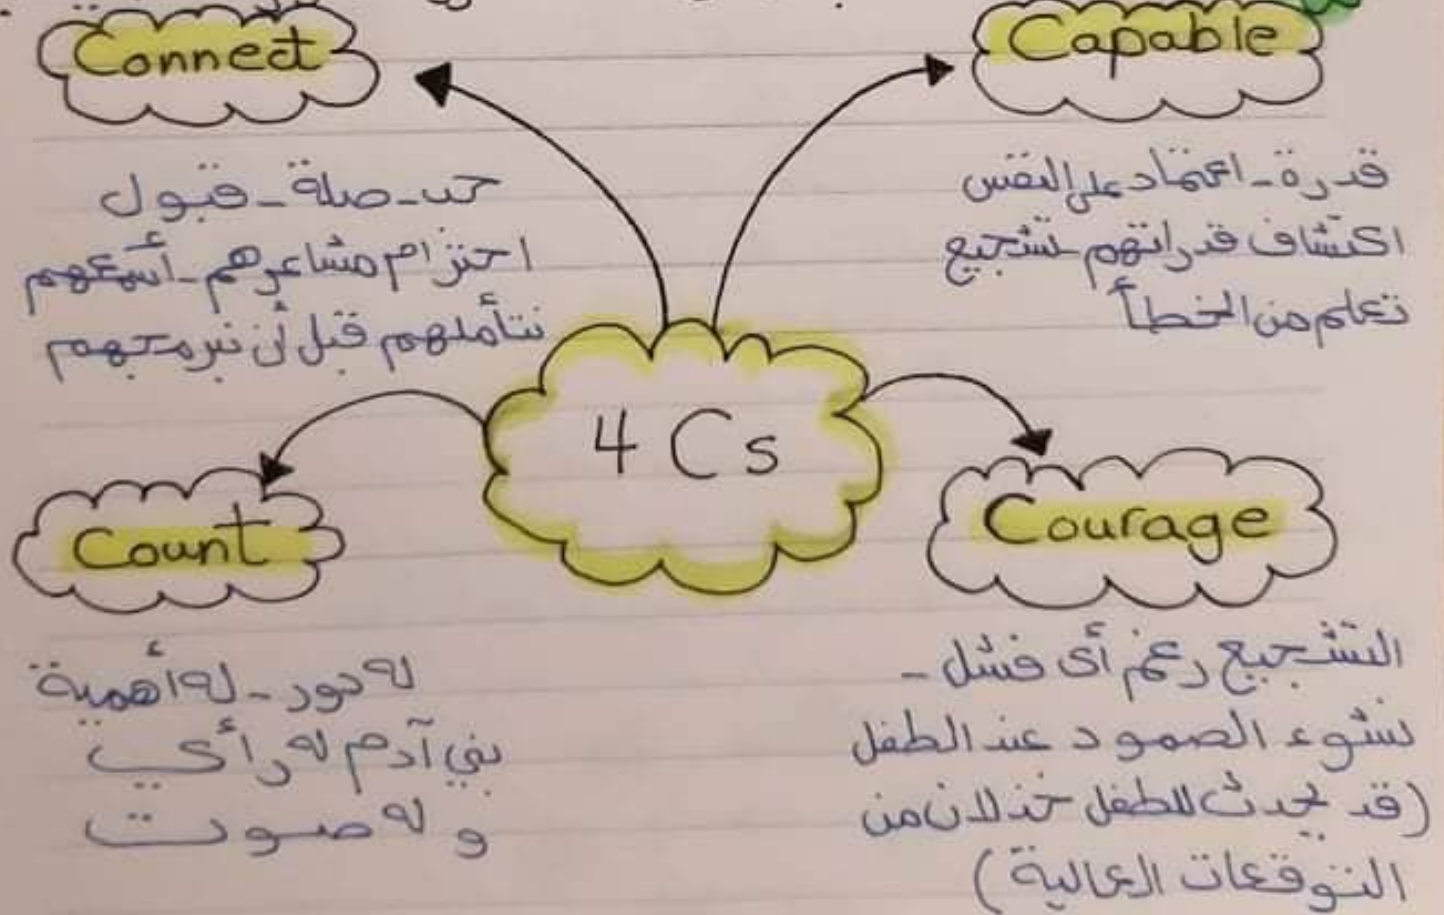 Connect
Capable
حب - صلة - قبول
احترام مشاعرهم - أسمعهم
نتأملهم قبل أن نبرمجهم
قدرة - اعتماد على النفس
اكتشاف قدراتهم - تشجيع
تعلم من الخطأ
4 Cs
Count
Courage
له دور - له أهمية
بني آدم له رأي
و له صوت
التشجيع رغم أى فشل -
نشوء الصمود عند الطفل
(قد يحدث للطفل خذلان من
التوقعات العالية)